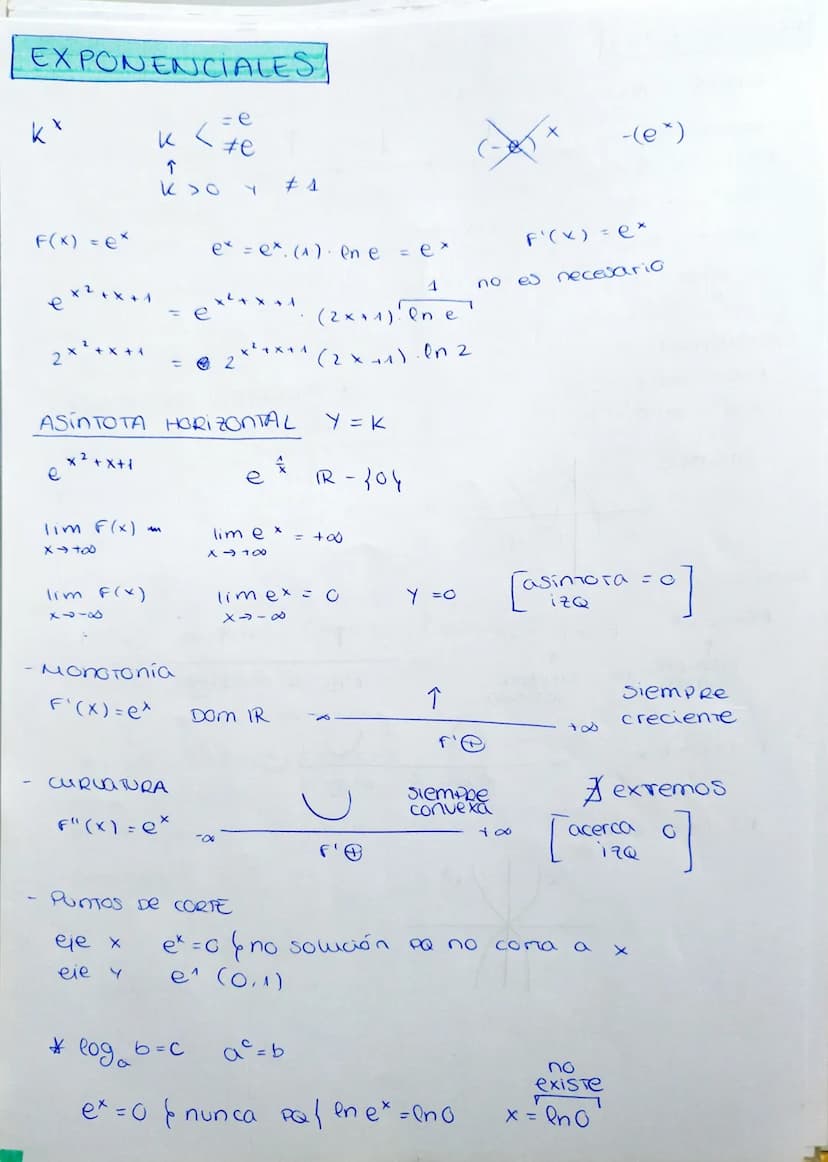 EXPONENCIALES
k^x   k < =e   (-e)^x   -(e^x)
≠e
↑
k>0 y ≠1
F(x) = e^x   e^x = e^x · (1) · ln e = e^x   F'(x) = e^x
e^{x²+x+1} = e^{x²+x+1} · (2x+1) · ln e   1   no es necesario
2^{x²+x+1} = 2^{x²+x+1} (2x+1) · ln 2
ASÍNTOTA HORIZONTAL   Y = K
e^{x²+x+1}   e^{1/x}   ℝ - {0}
lim F(x)   lim e^x = +∞
x→+∞   x→+∞
lim F(x)   lim e^x = 0   Y = 0   [asíntota = 0
x→-∞   x→-∞   izq]
- MONOTONÍA
F'(x) = e^x   DOM ℝ   -∞   ↑   +∞   siempre
F' ⊕   creciente
- CURVATURA   ∪   siempre convexa   ∄ extremos
F''(x) = e^x   -∞   +∞   [acerca 0
F' ⊕   izq]
- PUNTOS DE CORTE
eje x   e^x = 0 } no solución pq no corta a x
eje y   e^1 (0,1)
* log_a b = c   a^c = b
no
existe
e^x = 0 } nunca pq { ln e^x = ln 0   x = ln 0